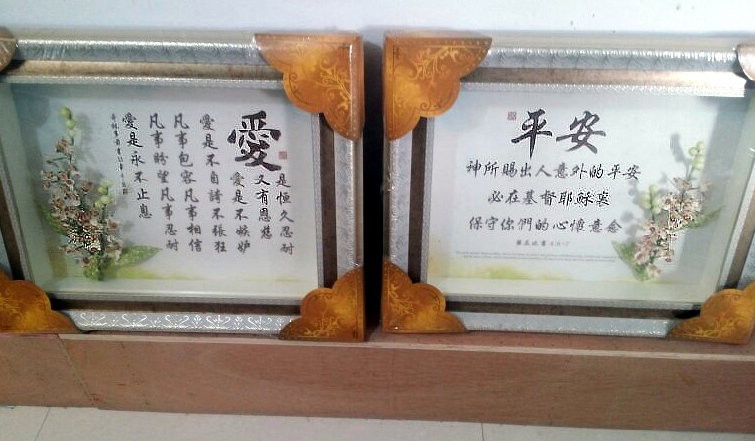 愛
是恒久忍耐
又有恩慈
愛是不嫉妒
愛是不自誇不張狂
凡事包容凡事相信
凡事盼望凡事忍耐
愛是永不止息
平安
神所賜出人意外的平安
必在基督耶穌裏
保守你們的心懷意念
腓立比書 4:6-7